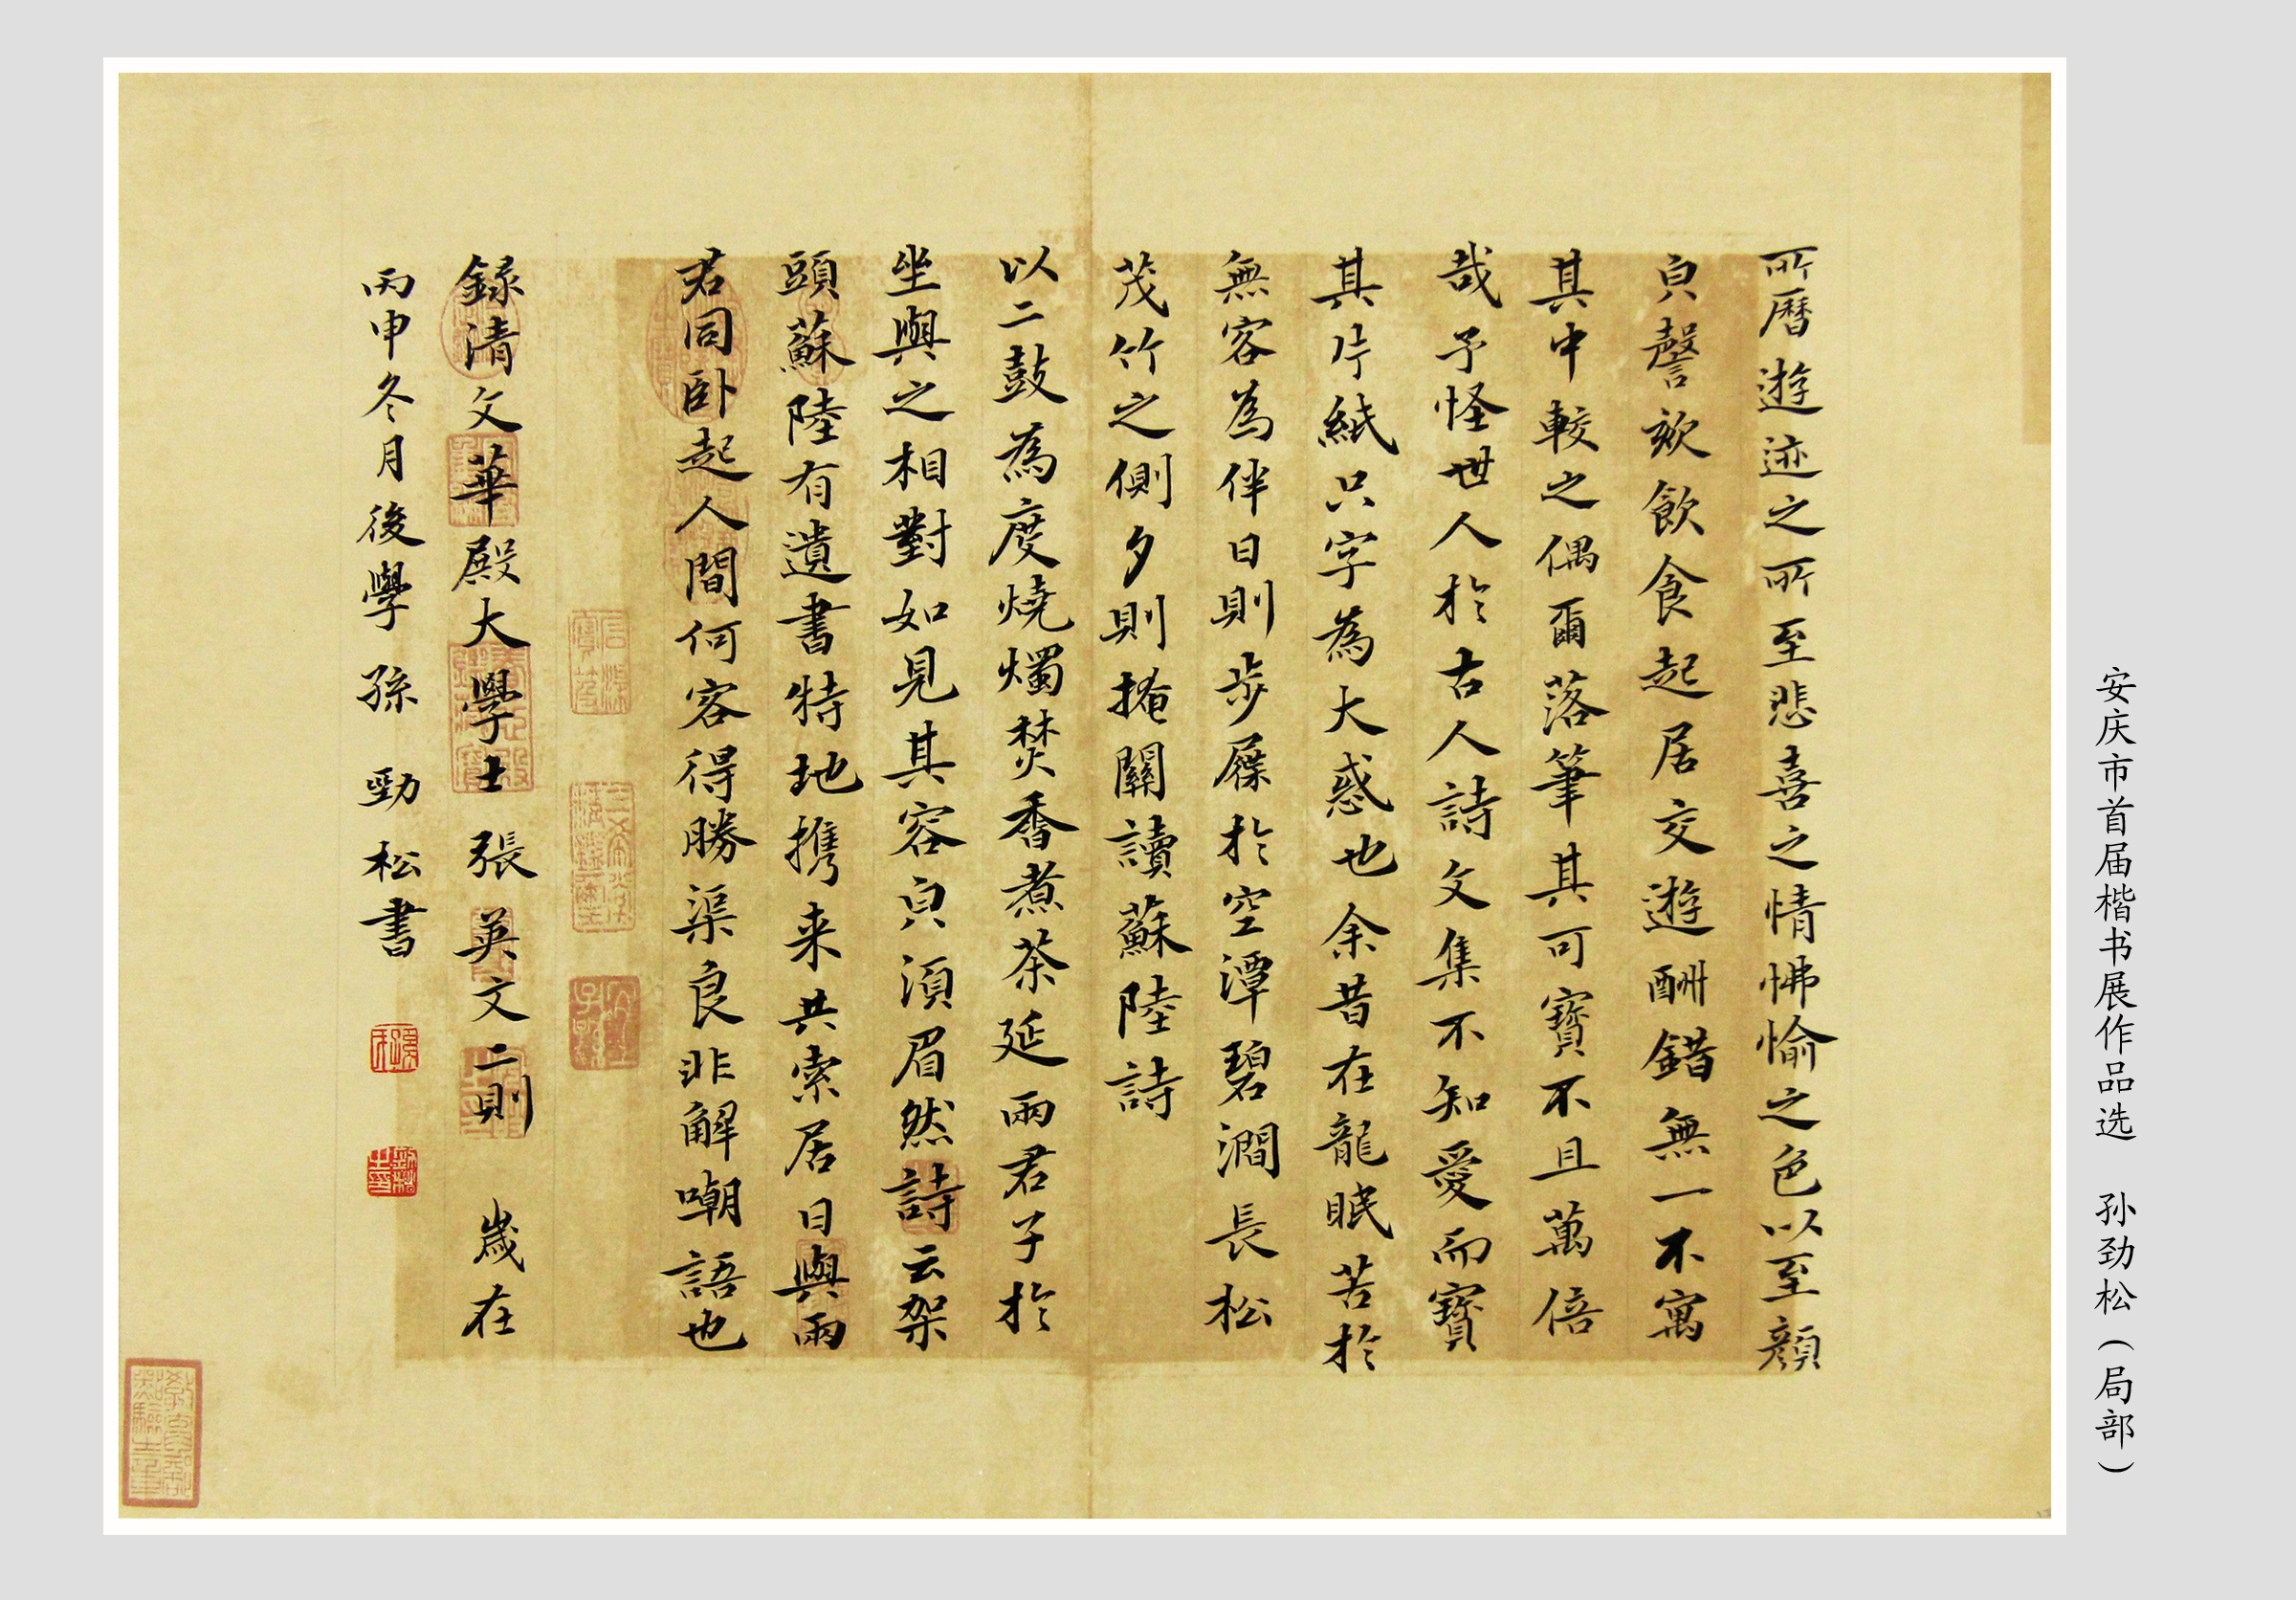 所曆遊迹之所至悲喜之情怫愉之色以至顔
皃謦欬飲食起居交遊酬錯無一不寓
其中較之偶爾落筆其可寶不且萬倍
哉予怪世人於古人詩文集不知愛而寶
其片紙只字為大惑也余昔在龍眠苦於
無客為伴日則步屧於空潭碧澗長松
茂竹之側夕則掩關讀蘇陸詩
以二鼓為度燒燭焚香煮茶延兩君子於
坐與之相對如見其容皃須眉然詩云架
頭蘇陸有遺書特地携来共索居日與兩
君同卧起人間何客得勝渠良非解嘲語也
録清文華殿大學士張英文二則 歲在
丙申冬月後學孫勁松書
安庆市首届楷书展作品选 孙劲松（局部）